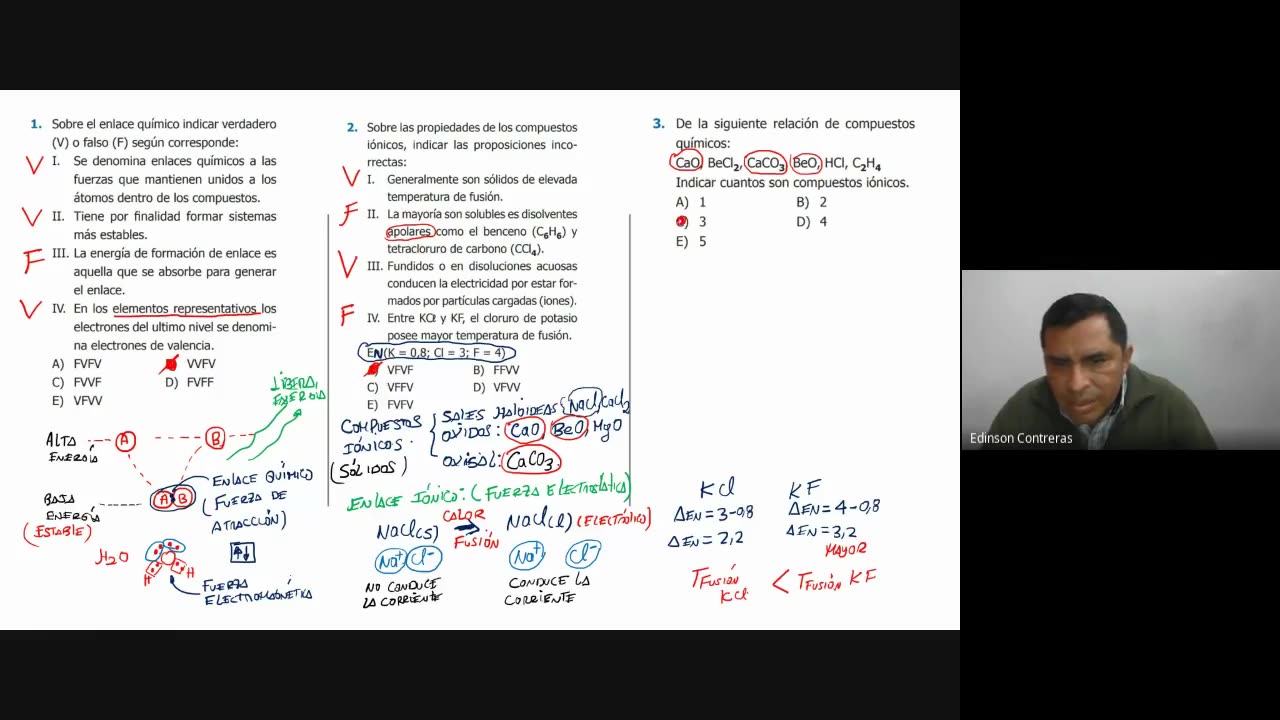 1. Sobre el enlace químico indicar verdadero
(V) o falso (F) según corresponde:
V I. Se denomina enlaces químicos a las
fuerzas que mantienen unidos a los
átomos dentro de los compuestos.
V II. Tiene por finalidad formar sistemas
más estables.
F III. La energía de formación de enlace es
aquella que se absorbe para generar
el enlace.
V IV. En los elementos representativos los
electrones del ultimo nivel se denomi-
na electrones de valencia.
A) FVFV VVFV
C) FVVF D) FVFF
E) VFVV
LIBERA
ENERGÍA
ALTA A B
ENERGÍA
BAJA A B
ENERGÍA
(ESTABLE)
ENLACE QUÍMICO
(FUERZA DE
ATRACCIÓN)
H2O
H H
FUERZA
ELECTROMAGNÉTICA
2. Sobre las propiedades de los compuestos
iónicos, indicar las proposiciones inco-
rrectas:
V I. Generalmente son sólidos de elevada
temperatura de fusión.
F II. La mayoría son solubles es disolventes
apolares como el benceno (C₆H₆) y
tetracloruro de carbono (CCl₄).
V III. Fundidos o en disoluciones acuosas
conducen la electricidad por estar for-
mados por partículas cargadas (iones).
F IV. Entre KCℓ y KF, el cloruro de potasio
posee mayor temperatura de fusión.
EN(K = 0,8; Cl = 3; F = 4)
VFVF B) FFVV
C) VFFV D) VFVV
E) FVFV
COMPUESTOS
IÓNICOS.
(SÓLIDOS)
SALES HALOIDEAS: NaCl, CaCl2
OXIDOS: CaO, BeO, MgO
OXISAL: CaCO3.
ENLACE IÓNICO: (FUERZA ELECTROSTÁTICA)
NaCl(s) CALOR NaCl(l) (ELECTRÓLITO)
FUSIÓN
Na+ Cl- Na+ Cl-
NO CONDUCE
LA CORRIENTE
CONDUCE LA
CORRIENTE
3. De la siguiente relación de compuestos
químicos:
CaO, BeCl₂, CaCO₃, BeO, HCl, C₂H₄
Indicar cuantos son compuestos iónicos.
A) 1 B) 2
3 D) 4
E) 5
KCl KF
ΔEN = 3-0,8 ΔEN = 4-0,8
ΔEN = 2,2 ΔEN = 3,2
MAYOR
TFUSIÓN KCl < TFUSIÓN KF
Edinson Contreras